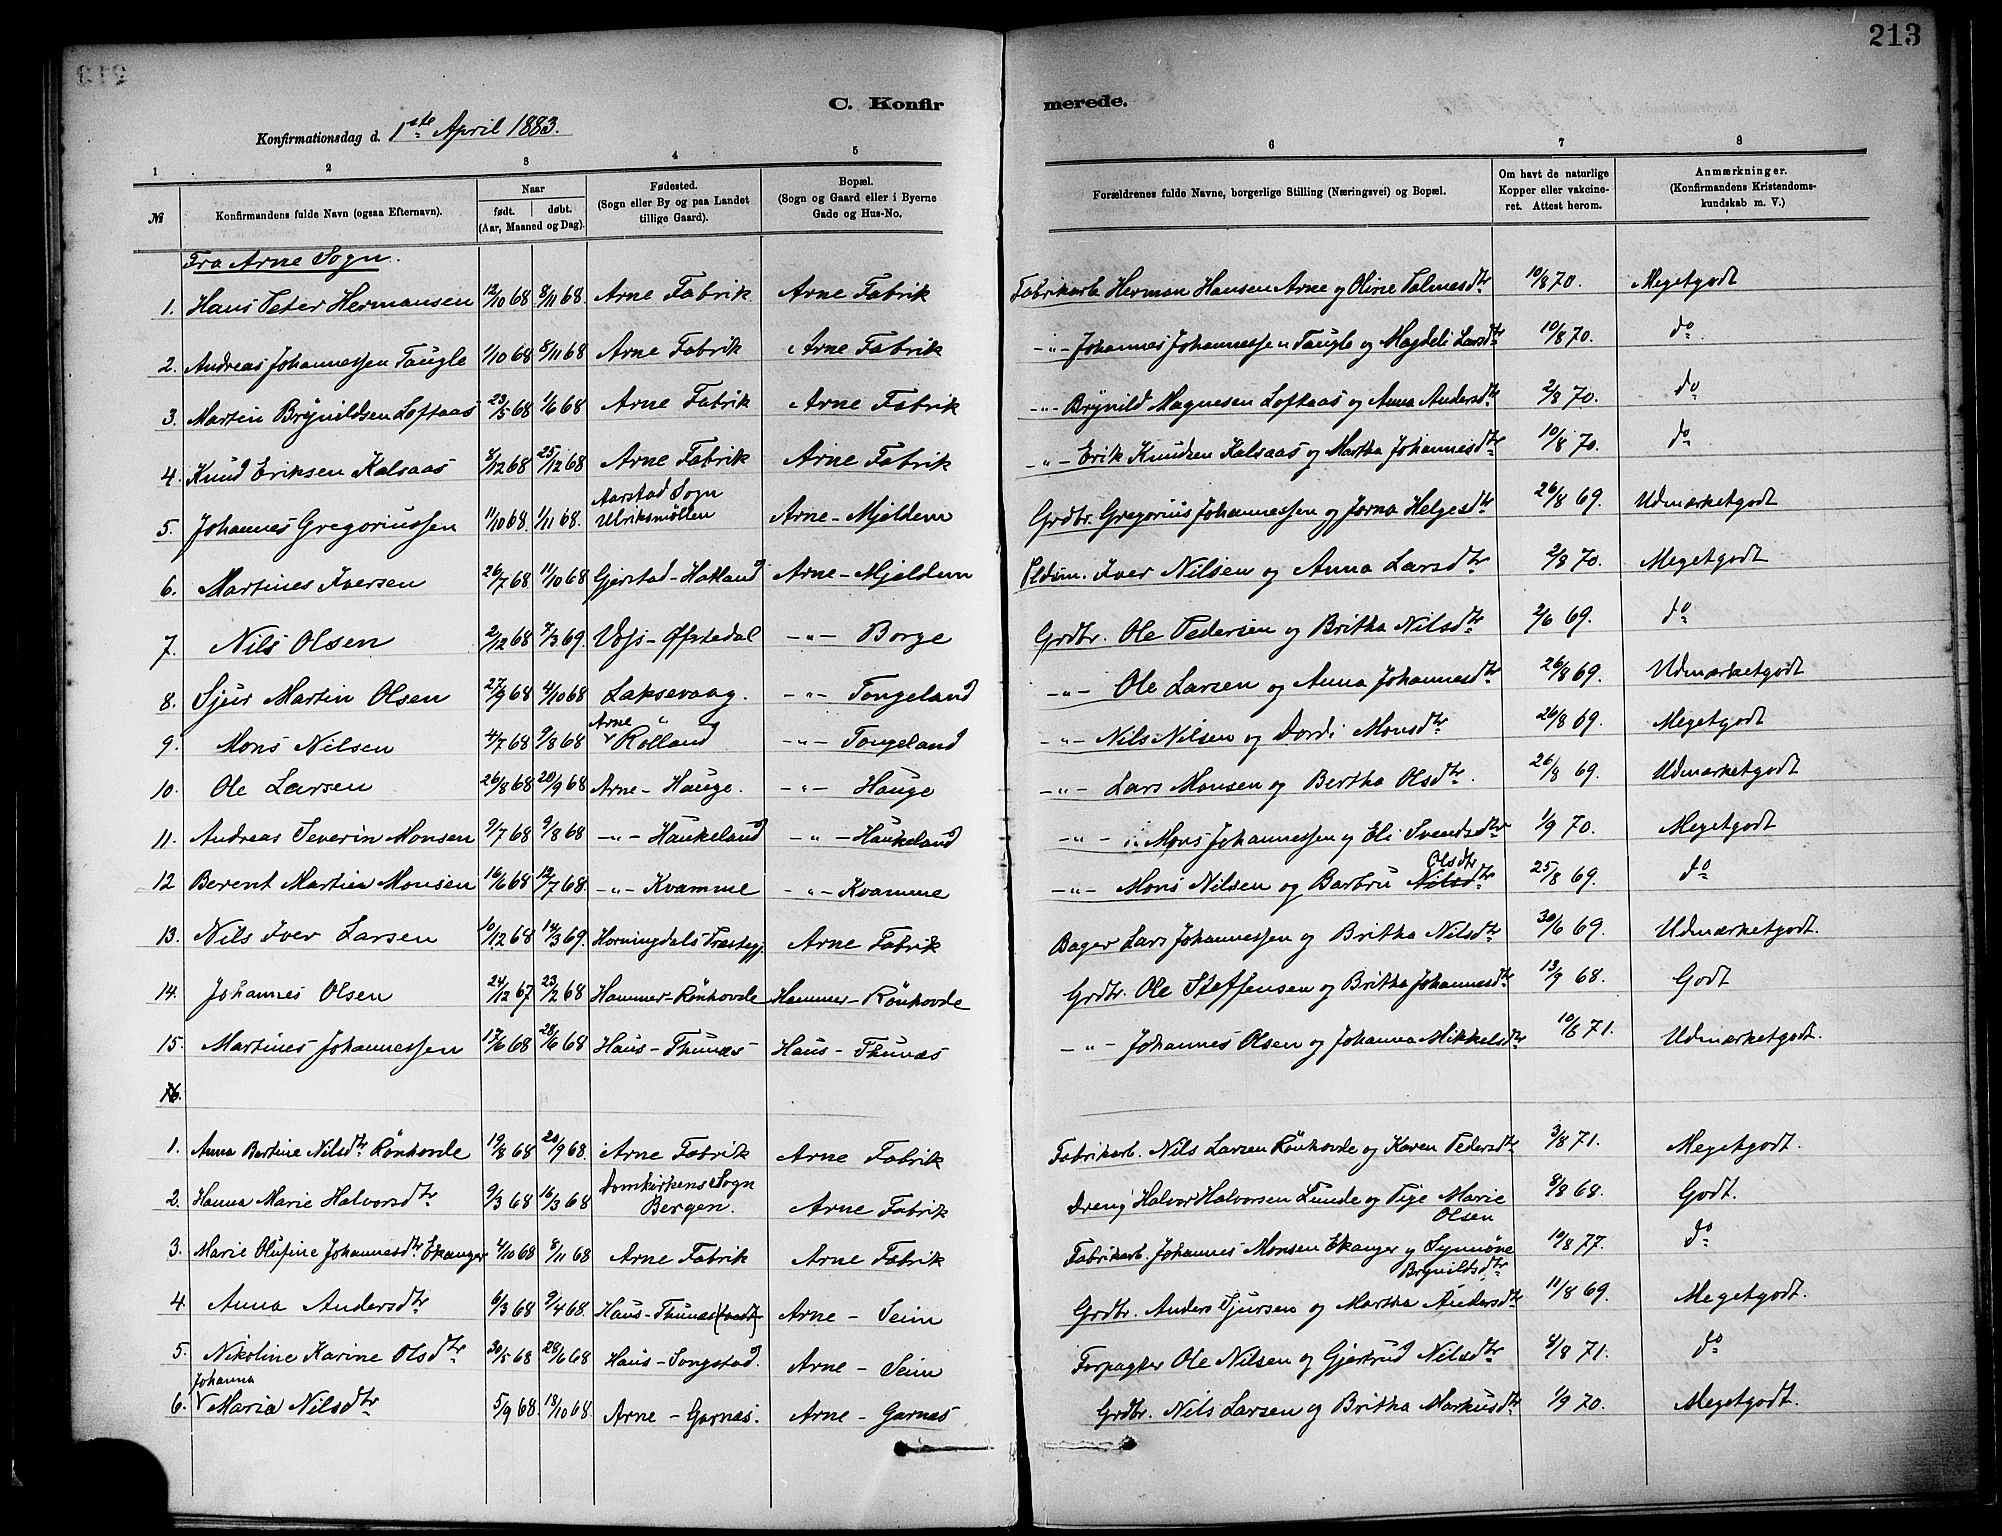 213
C. Konfirmerede.
Konfirmationsdag d. 1ste April 1883.
1 2 3 4 5 6 7 8
№ Konfirmandens fulde Navn (ogsaa Efternavn). Naar født. døbt. (Aar, Maaned og Dag). Fødested. (Sogn eller By og paa Landet tillige Gaard). Bopæl. (Sogn og Gaard eller i Byerne Gade og Hus-No. Forældrenes fulde Navne, borgerlige Stilling (Næringsvei) og Bopæl. Om havt de naturlige Kopper eller vakcineret. Attest herom. Anmærkninger. (Konfirmandens Kristendomskundskab m. V.)
Fra Arne Sogn.
1. Hans Peter Hermansen 12/10 68 8/11 68 Arne Fabrik Arne Fabrik Fabrikarb. Herman Hansen Arne og Oline Palmesdtr 10/8 70. Megetgodt
2. Andreas Johannessen Taugle 1/10 68 8/11 68 Arne Fabrik Arne Fabrik -"- Johannes Johannessen Taugle og Magdeli Larsdtr 10/8 70. do
3. Martin Brynildsen Loftaas 23/5 68 1/6 68 Arne Fabrik Arne Fabrik -"- Brynild Magnesen Loftaas og Anna Andersdtr 2/8 70. do
4. Knud Eriksen Kalsaas 8/12 68 25/12 68 Arne Fabrik Arne Fabrik -"- Erik Knudsen Kalsaas og Martha Johannesdtr 10/8 70. do
5. Johannes Gregoriussen 11/10 68. 1/11 68. Aarstad Sogn Ulriksmöllen Arne-Mjeldem Grdbr. Gregorius Johannessen og Jorna Helgesdtr 26/8 69. Udmærketgodt
6. Martines Iversen 26/7 68 11/10 68 Gjerstad-Hatland Arne-Mjeldem Pldsm. Iver Nilsen og Anna Larsdtr 2/8 70. Megetgodt
7. Nils Olsen 2/12 68 7/3 69. Vojs-Øfstedal -"- Borge Grdbr. Ole Pedersen og Britha Nilsdtr 2/6 69. do
8. Sjur Martin Olsen 27/9 68 4/10 68 Laksevaag. -"- Tongeland -"- Ole Larsen og Anna Johannesdtr 26/8 69. Udmærketgodt
9. Mons Nilsen 4/7 68 9/8 68 Arne Rölland -"- Tongeland -"- Nils Nilsen og Dordi Monsdtr 26/8 69. Megetgodt
10. Ole Larsen 26/8 68 20/9 68 Arne-Hauge. -"- Hauge -"- Lars Monsen og Bertha Olsdtr. 26/8 69. Udmærketgodt
11. Andreas Severin Monsen 9/7 68 9/8 68 -"- Haukeland -"- Haukeland -"- Mons Johannessen og Eli Svendsdtr 1/9 70. Megetgodt
12 Berent Martin Monsen 16/6 68 12/7 68. -"- Kvamme -"- Kvamme -"- Mons Nilsen og Barbru Nilsdtr Olsdtr 25/8 69. do
13. Nils Iver Larsen 10/12 68 14/3 69. Horningdals Arne Fabrik Bager Lars Johannessen og Britha Nilsdtr 30/6 69. Udmærketgodt.
14. Johannes Olsen 24/12 67 23/2 68 Hammer-Rönhovde Hammer-Rönhovde Grdbr. Ole Steffensen og Britha Johannesdtr 13/9 68. Godt
15. Martines Johannessen 17/6 68 28/6 68 Haus-Thunæs Haus-Thunæs -"- Johannes Olsen og Johanna Mikkelsdtr 10/6 71. Udmærketgodt.
16.
1. Anna Bertine Nilsdtr Rönhovde 19/8 68 20/9 68 Arne Fabrik Arne Fabrik Fabrikarb. Nils Larsen Rönhovde og Karen Pedersdtr 3/8 71. Megetgodt.
2. Hanna Marie Halvorsdtr 9/3 68 16/3 68 Domkirkens Sogn Bergen. Arne Fabrik Dreng Halvor Halvorsen Lunde og Pige Marie Olsen 8/8 68. Godt.
3. Marie Olufine Johannesdtr Ekanger 4/10 68 8/11 68 Arne Fabrik Arne Fabrik Fabrikarb. Johannes Monsen Ekanger og Synnöve Brynildsdtr 10/8 77. do
4. Anna Andersdtr 6/3 68 9/4 68. Haus-Thunæs Arne-Seim Grdbr. Anders Sjursen og Martha Andersdtr 11/8 69. Megetgodt.
5. Nikoline Karine Olsdtr 30/5 68 28/6 68 Haus-Songstad. Arne-Seim Forpagter Ole Nilsen og Gjertrud Nilsdtr 4/8 71. do
6. Johanna Maria Nilsdtr 5/9 68. 18/10 68. Arne-Garnæs. Arne-Garnæs Grdbr. Nils Larsen og Britha Markusdtr 1/9 70. Megetgodt.